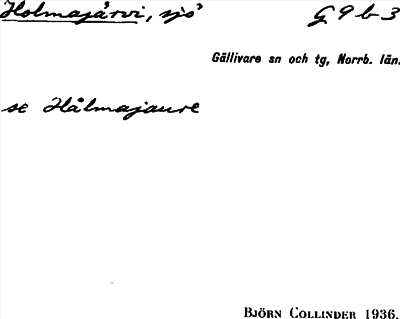 Holmajärvi, sjö G 9 b 3
Gällivare sn och tg, Norrb. län.
se Hålmajaure
BJÖRN COLLINDER 1936.